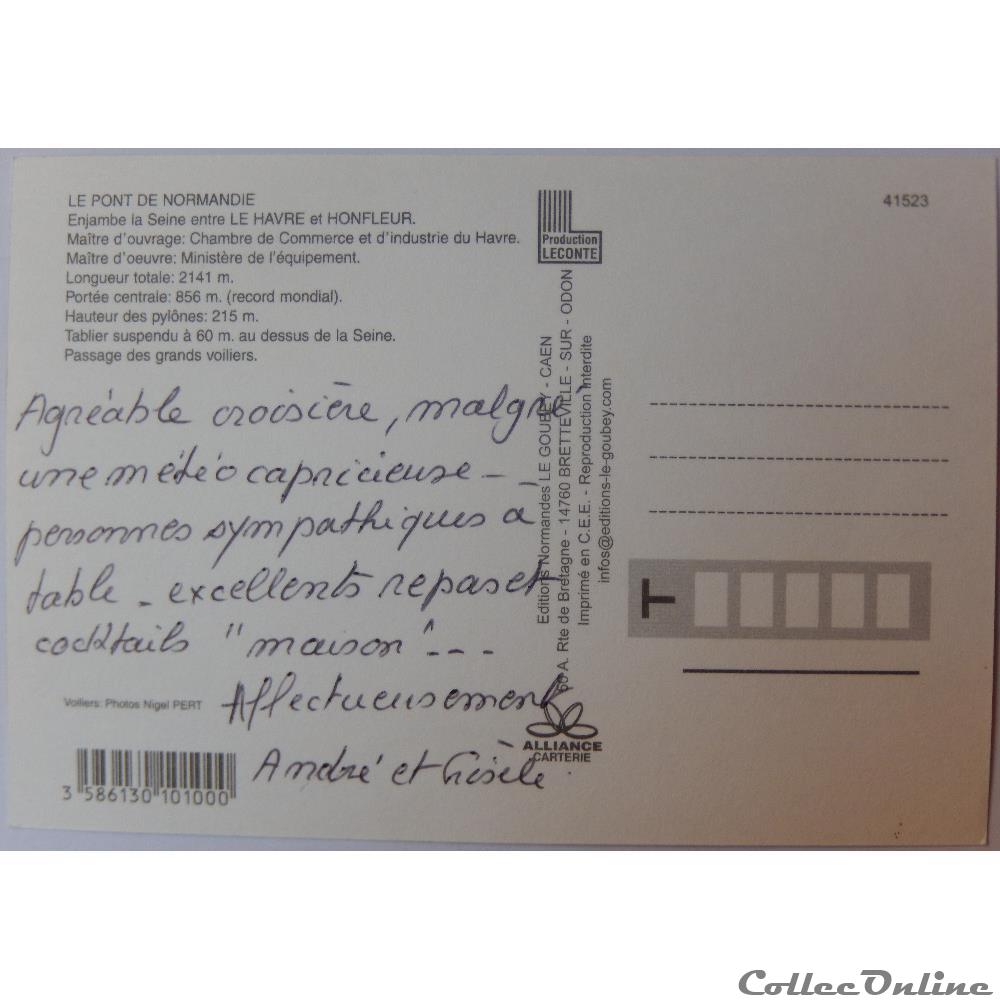 LE PONT DE NORMANDIE
Enjambe la Seine entre LE HAVRE et HONFLEUR.
Maître d'ouvrage: Chambre de Commerce et d'industrie du Havre.
Maître d'oeuvre: Ministère de l'équipement.
Longueur totale: 2141 m.
Portée centrale: 856 m. (record mondial).
Hauteur des pylônes: 215 m.
Tablier suspendu à 60 m. au dessus de la Seine.
Passage des grands voiliers.
Agréable croisière, malgré
une météo capricieuse - -
personnes sympathiques à
table - excellents repas et
cocktails "maison" - - -
Affectueusement
André et Gisèle.
Voiliers: Photos Nigel PERT
3 586130 101000
Production
LECONTE
Editions Normandes LE GOUBEY - CAEN
60 A. Rte de Bretagne - 14760 BRETTEVILLE - SUR - ODON
Imprimé en C.E.E. - Reproduction interdite
infos@editions-le-goubey.com
ALLIANCE
CARTERIE
41523
T
CollecOnline